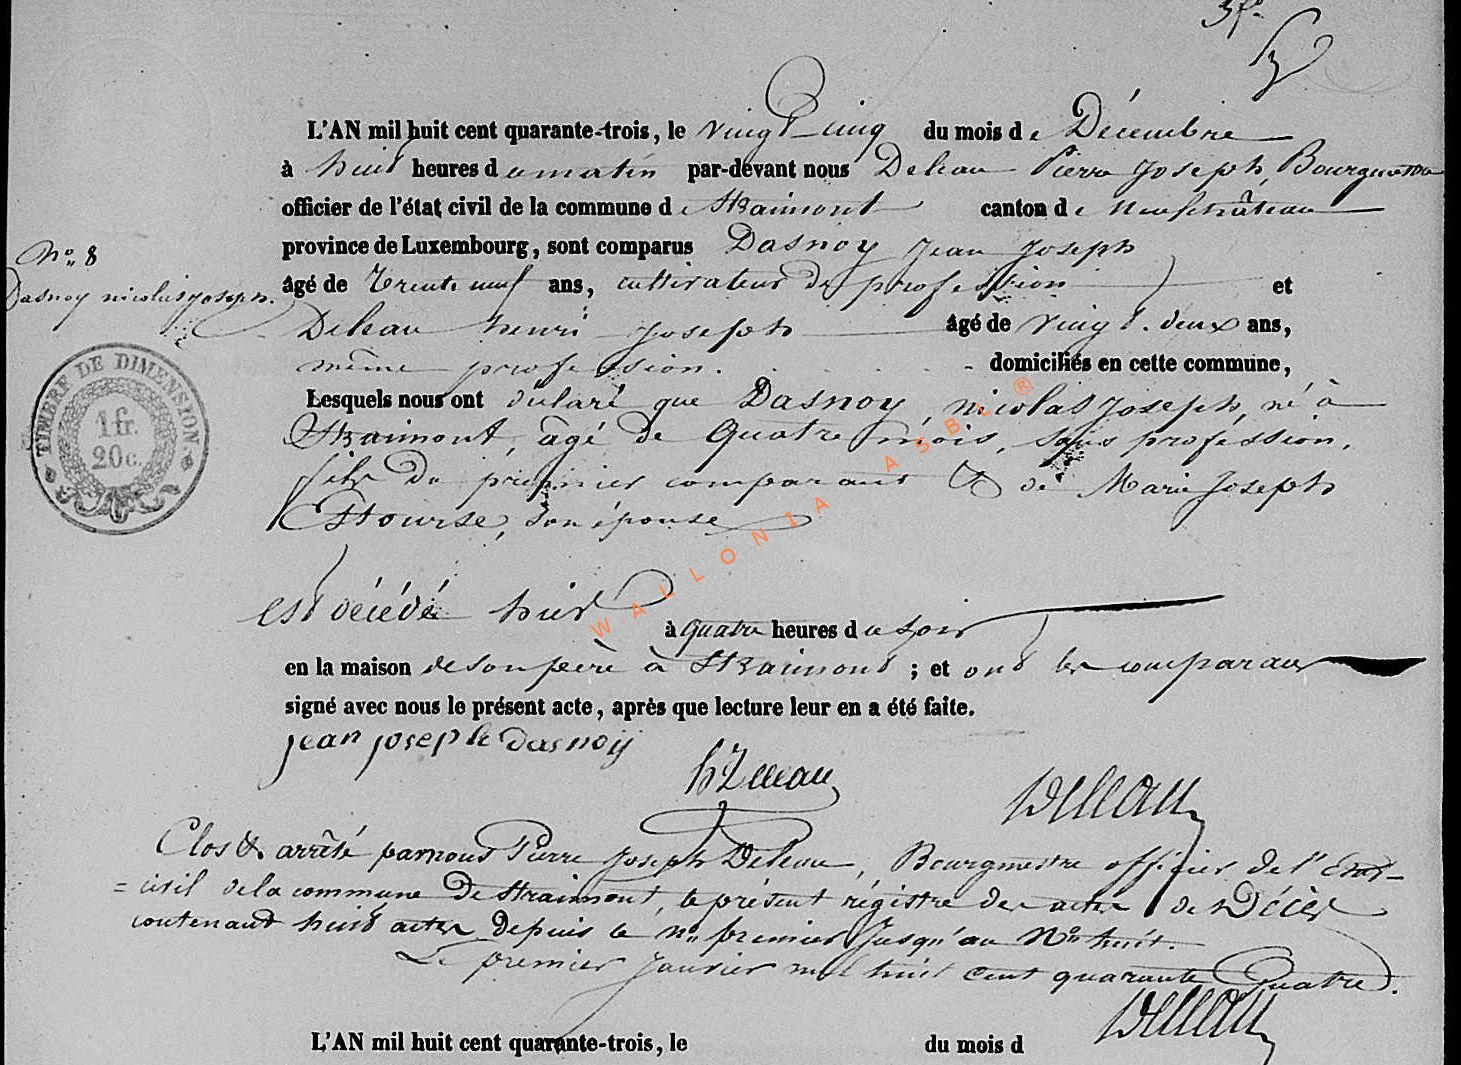 L'AN mil huit cent quarante-trois, le vingt-cinq du mois de Décembre
à huit heures du matin par-devant nous Deleau Pierre Joseph, Bourguemtre
officier de l'état civil de la commune de Straimont canton de Neufchâteau
province de Luxembourg, sont comparus Dasnoy Jean Joseph
N° 8
Dasnoy nicolas joseph.
âgé de trente neuf ans, cultivateur de profession et
Deleau henri Joseph âgé de vingt-deux ans,
même profession. domiciliés en cette commune,
Lesquels nous ont déclaré que Dasnoy, nicolas Joseph, né à
Straimont, âgé de Quatre mois, sans profession,
fils du premier comparant & de Marie Joseph
Hourse, son épouse
est décédé hier
à quatre heures du soir
en la maison de son père à Straimont ; et ont les comparans
signé avec nous le présent acte, après que lecture leur en a été faite.
jean joseph dasnoy
h J Deleau
Deleau
Clos & arrêté par nous Pierre Joseph Deleau, Bourgmestre officier de l'Etat-
= civil de la commune De Straimont, le présent régistre des actes de Décès
contenant huit actes depuis le n° premier jusqu'au N° huit.
Le premier Janvier mil huit cent quarante Quatre.
Deleau
TIMBRE DE DIMENSION
1 fr.
20 c.
WALLONIA ASBL ®
L'AN mil huit cent quarante-trois, le du mois d